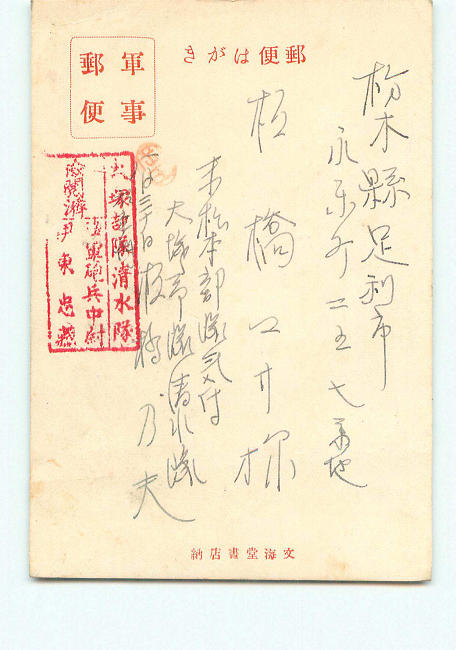 郵便はがき
軍事
郵便
栃木縣足利市
永楽町二五七番地
板橋
様
末松本部隊気付
大塚部隊清水隊
乃夫
大塚部隊清水隊
陸軍砲兵中尉
検閲濟 伊東忠
文海堂書店納